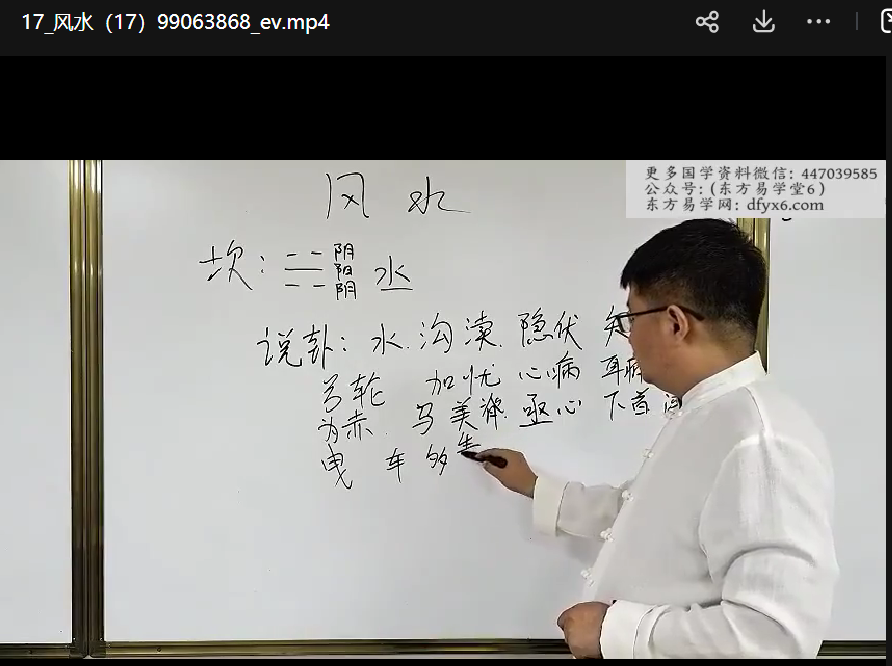 17_风水（17）99063868_ev.mp4
更多国学资料微信：447039585
公众号：(东方易学堂6)
东方易学网：dfyx6.com
风 水
坎： 阴 水
阳
阴
说卦：水.沟渎.隐伏
弓轮 加忧 心病 耳
为赤.马美脊.亟心 下首
曳 车多